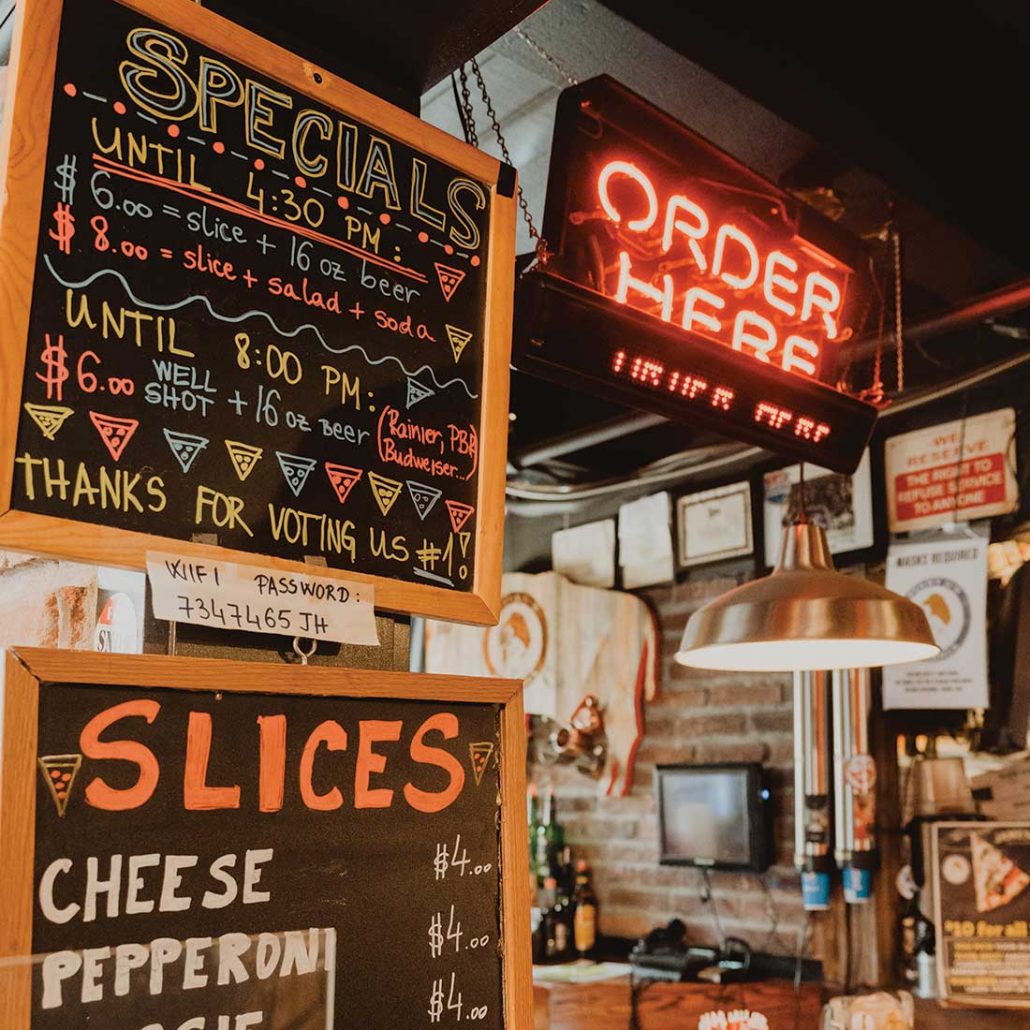 SPECIALS
UNTIL 4:30 PM:
$ 6.00 = slice + 16 oz beer
$ 8.00 = slice + salad + soda
UNTIL 8:00 PM:
$6.00 WELL SHOT + 16 oz Beer (Rainier, PBR
Budweiser...)
THANKS FOR VOTING US #1!
WIFI PASSWORD:
7347465 JH
SLICES
CHEESE $4.00
PEPPERONI $4.00
$4.00
ORDER
HERE
WE
RESERVE
THE RIGHT TO
REFUSE SERVICE
TO ANYONE
MASKS REQUIRED
$10 for all